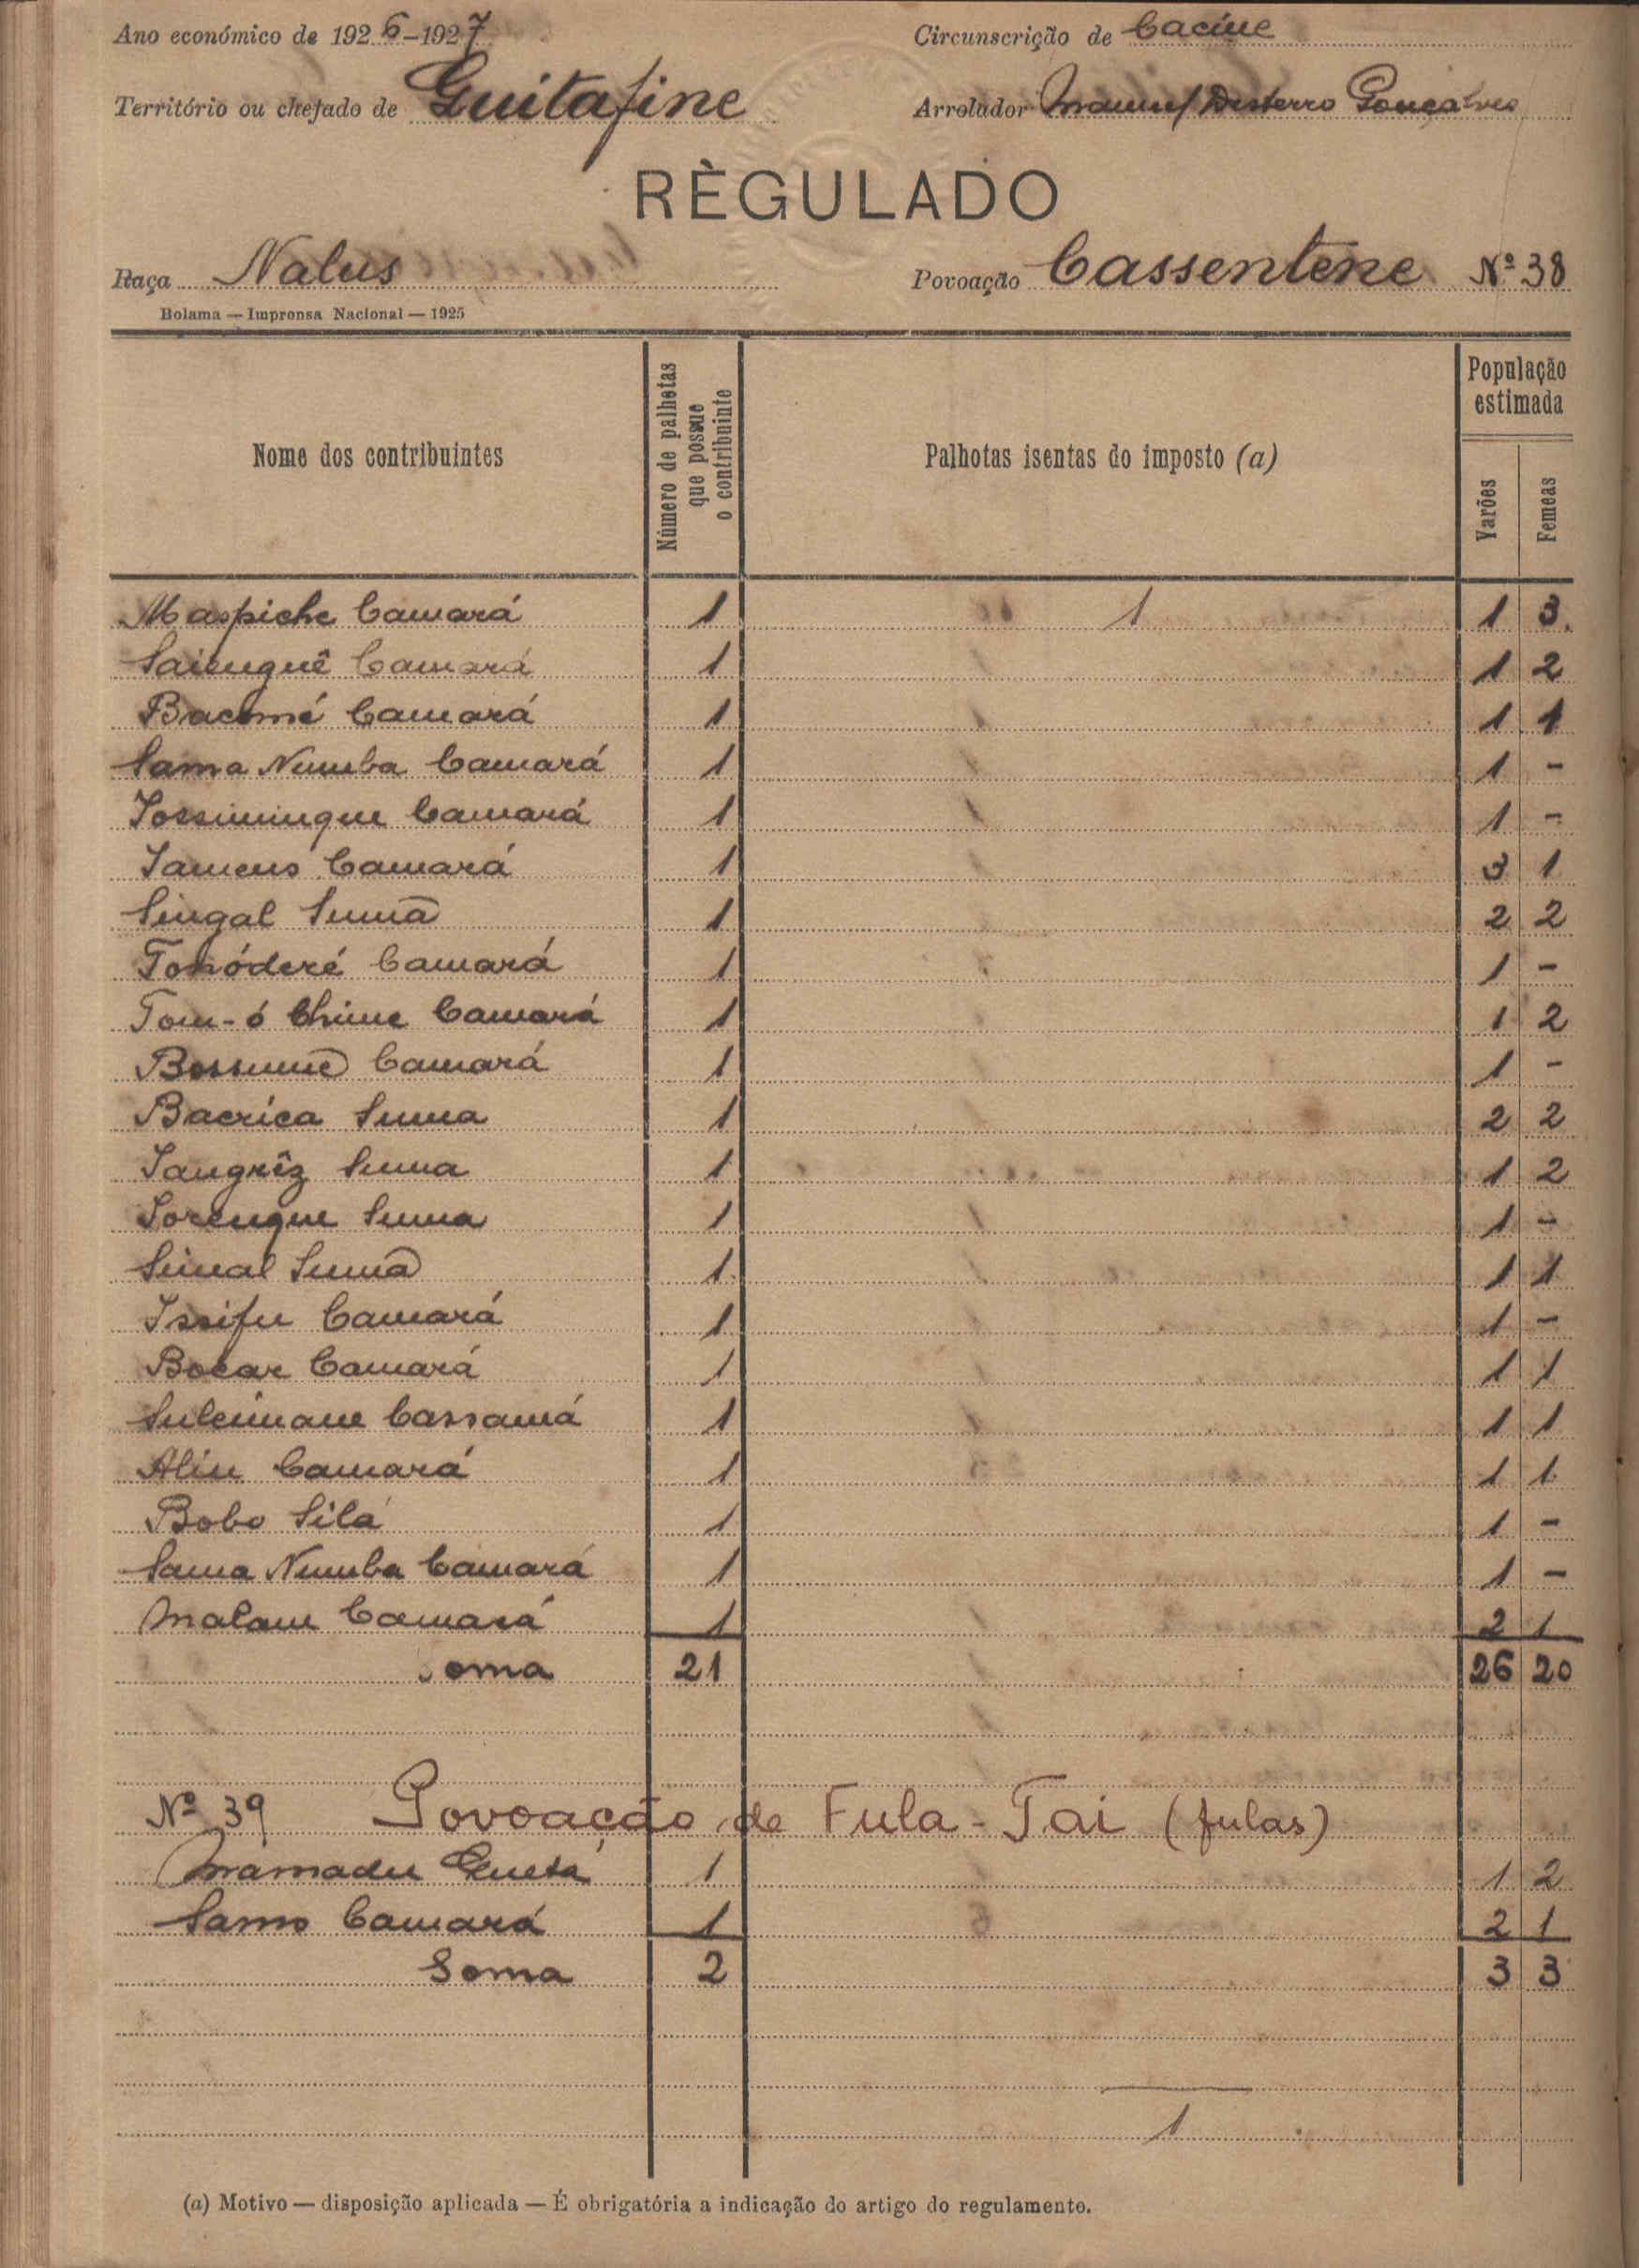 Ano económico de 1926-1927
Circunscrição de Cacine
Território ou chefado de Guitafine
Arrolador Manuel Desterro Gonçalves
RÈGULADO
Raça Nalus
Povoação Cassentene Nº 38
Bolama — Imprensa Nacional — 1925
Nome dos contribuintes
Número de palhotas que possue o contribuinte
Palhotas isentas do imposto (a)
População estimada
Varões
Femeas
Maspiche Camará 1 1 1 3
Camará 1 1 2
Bacomé Camará 1 1 1
Sama Numba Camará 1 1 -
Camará 1 1 -
Camará 1 3 1
Singal Sumá 1 2 2
Camará 1 1 -
Tom-ó Chime Camará 1 1 2
Camará 1 1 -
Bacrica Suma 1 2 2
Suma 1 1 2
Sorengue Suma 1 1 -
Simal Sumá 1 1 1
Issifu Camará 1 1 -
Bocar Camará 1 1 1
Suleimane Cassamá 1 1 1
Aliu Camará 1 1 1
Bobo Silá 1 1 -
Sama Numba Camará 1 1 -
Malam Camará 1 2 1
Soma 21 26 20
Nº 39 Povoação de Fula-Tai (fulas)
Mamadu 1 1 2
Camará 1 2 1
Soma 2 3 3
1
(a) Motivo — disposição aplicada — É obrigatória a indicação do artigo do regulamento.